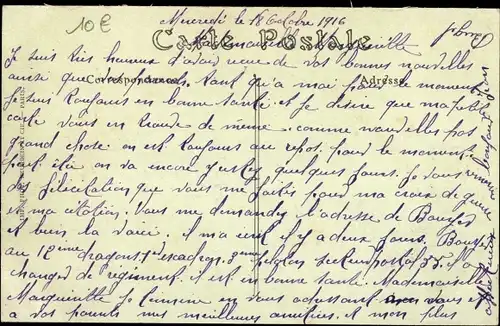 10€
Mercredi le 18 Octobre 1916
Carte Postale
Mademoiselle Marguerite
Je suis très heureux d'avoir reçue de vos bonnes nouvelles
Correspondance
Adresse
ainsi que vos parents tant qu'a moi pour le moment
je suis toujours en bonne santé et je désire que ma petite
carte vous en trouve de même. comme nouvelles pas
grand chose on est toujours au repos pour le moment
peut être on va encore rester quelques jours. Je vous remercie
des félicitation que vous me faites pour ma croix de guerre
et ma citation. Vous me demandez l'adresse de
et bien la voici. il ma écrit il y a deux jours.
au 12ème dragons 1er escadron 3ème peloton secteur postal 55. il a
changer de régiment. il est en bonne santé. Mademoiselle
Marguerite je termine en vous adressant a vous et
a vos parents mes meilleures amitiés. et mon plus